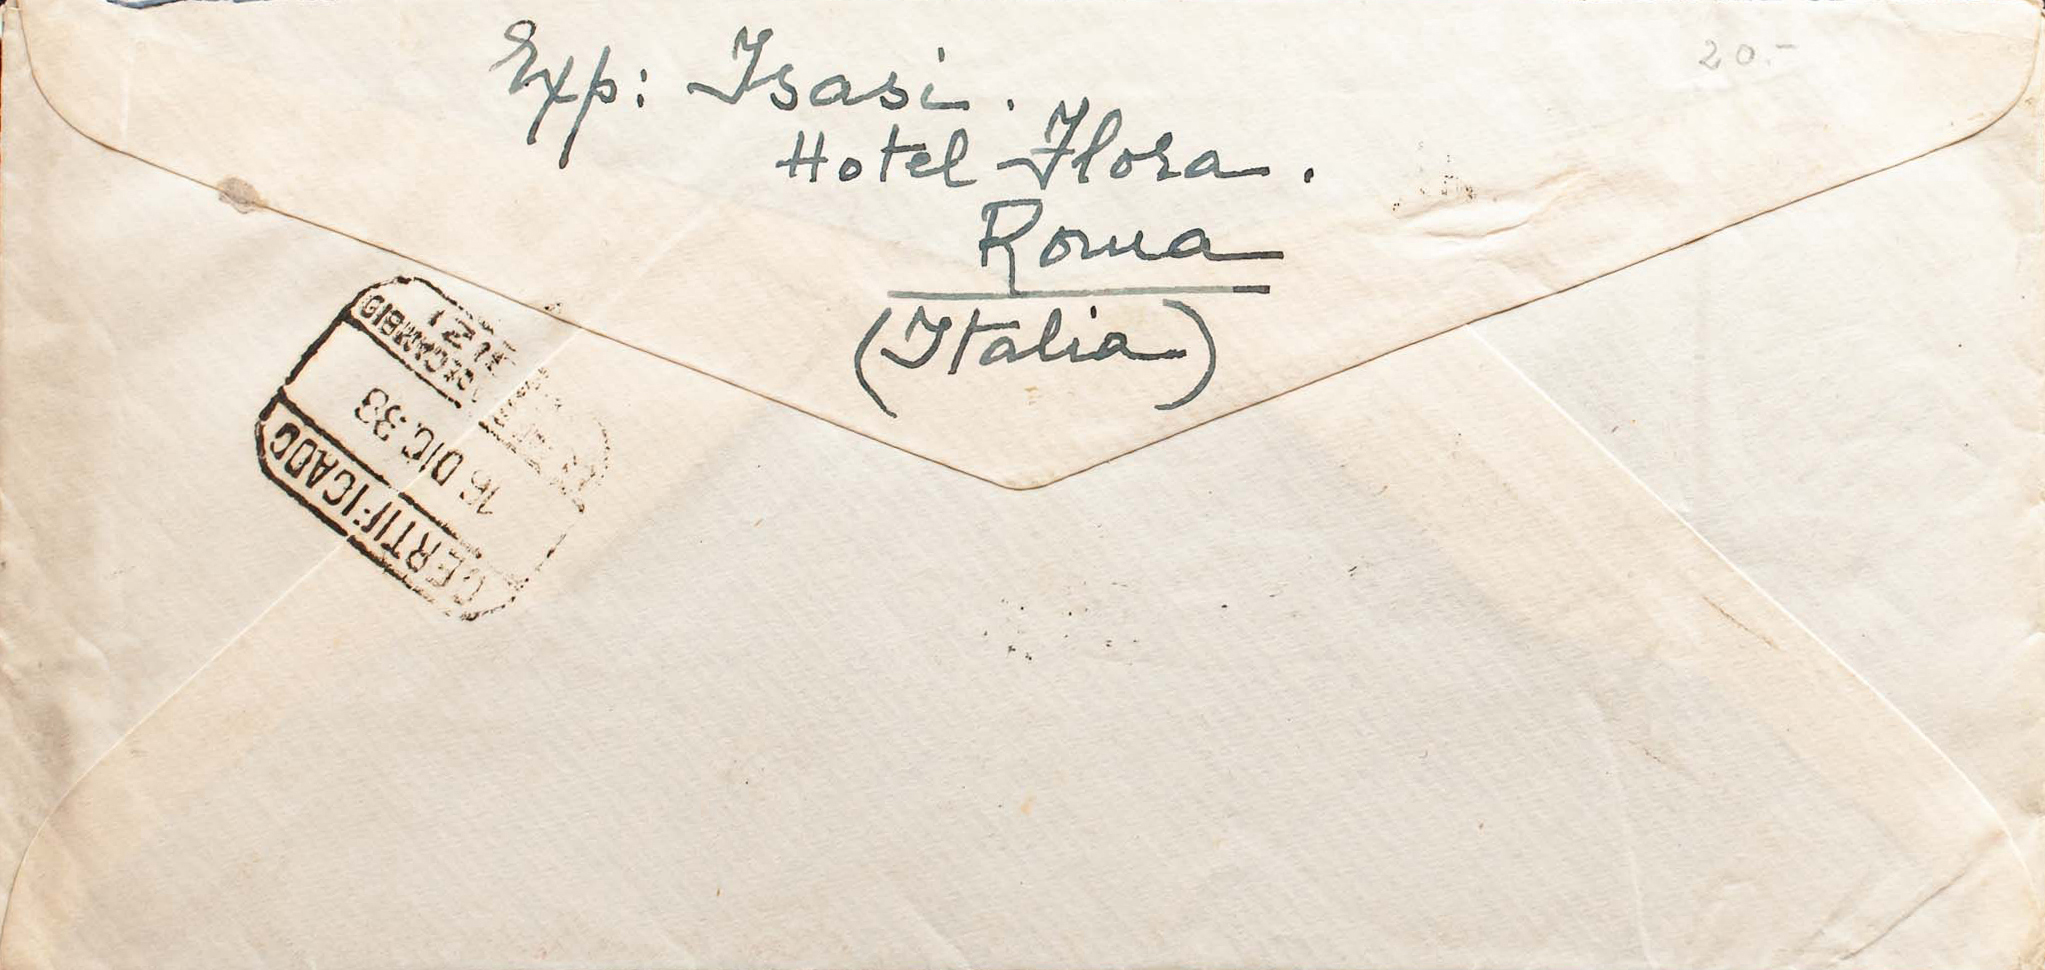 Exp: Isasi.
Hotel Flora.
Roma
(Italia)
20.-
CERTIFICADO
16 DIC. 33